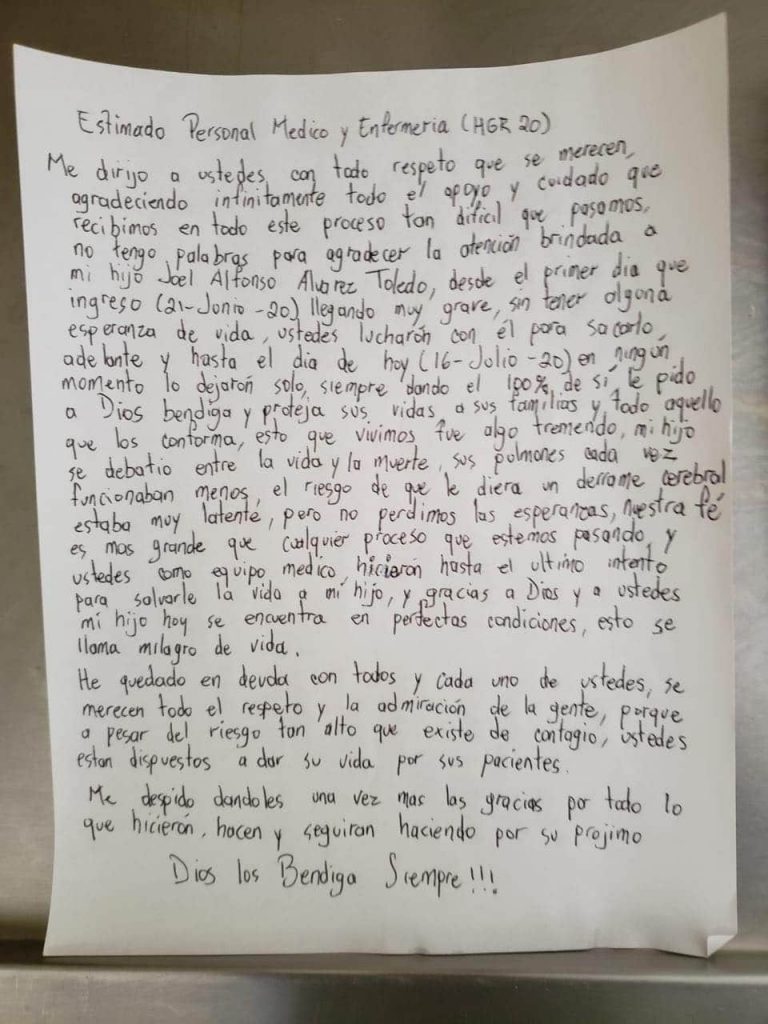 Estimado Personal Medico y Enfermeria (HGR 20)
Me dirijo a ustedes con todo respeto que se merecen,
agradeciendo infinitamente todo el apoyo y cuidado que
recibimos en todo este proceso tan dificil que pasamos,
no tengo palabras para agradecer la atención brindada a
mi hijo Joel Alfonso Alvarez Toledo, desde el primer dia que
ingreso (21-Junio-20) llegando muy grave, sin tener alguna
esperanza de vida, ustedes lucharón con él para sacarlo
adelante y hasta el dia de hoy (16-Julio-20) en ningún
momento lo dejarón solo, siempre dando el 100% de sí, le pido
a Dios bendiga y proteja sus vidas a sus familias y todo aquello
que los conforma, esto que vivimos fue algo tremendo, mi hijo
se debatio entre la vida y la muerte, sus pulmones cada vez
funcionaban menos, el riesgo de que le diera un derrame cerebral
estaba muy latente, pero no perdimos las esperanzas, nuestra fé
es mas grande que cualquier proceso que estemos pasando, y
ustedes como equipo medico, hicierón hasta el ultimo intento
para salvarle la vida a mi hijo, y gracias a Dios y a ustedes
mi hijo hoy se encuentra en perfectas condiciones, esto se
llama milagro de vida.
He quedado en deuda con todos y cada uno de ustedes, se
merecen todo el respeto y la admiración de la gente, porque
a pesar del riesgo tan alto que existe de contagio, ustedes
estan dispuestos a dar su vida por sus pacientes.
Me despido dandoles una vez mas las gracias por todo lo
que hicierón, hacen y seguiran haciendo por su projimo
Dios los Bendiga Siempre!!!